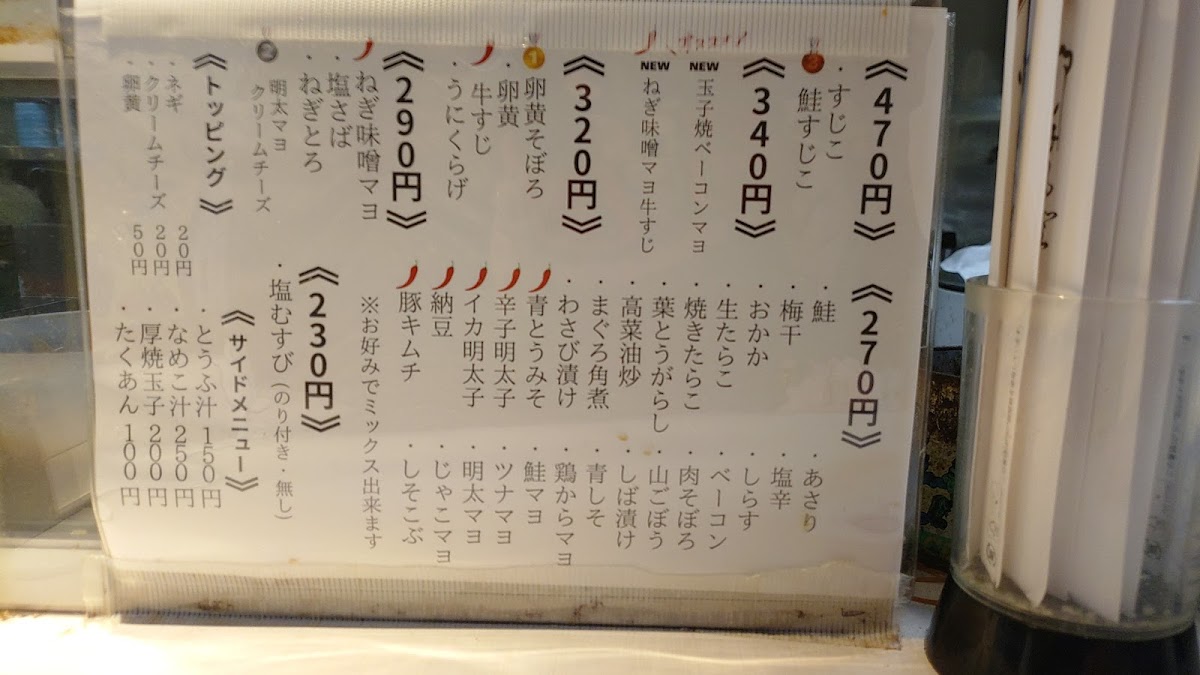 《470円》
・すじこ
3
鮭すじこ
《340円》
NEW
玉子焼ベーコンマヨ
NEW
ねぎ味噌マヨ牛すじ
《320円》
1
卵黄そぼろ
・卵黄
牛すじ
・うにくらげ
《290円》
ねぎ味噌マヨ
・塩さば
・ねぎとろ
2
明太マヨ
クリームチーズ
《トッピング》
・ネギ 20円
・クリームチーズ 20円
・卵黄 50円
《270円》
・鮭
・梅干
・おかか
・生たらこ
・焼きたらこ
・葉とうがらし
・高菜油炒
・まぐろ角煮
・わさび漬け
青とうみそ
辛子明太子
イカ明太子
納豆
豚キムチ
・あさり
・塩辛
・しらす
・ベーコン
・肉そぼろ
・山ごぼう
・しば漬け
・青しそ
・鶏からマヨ
・鮭マヨ
・ツナマヨ
・明太マヨ
・じゃこマヨ
・しそこぶ
※お好みでミックス出来ます
《230円》
・塩むすび(のり付き・無し)
《サイドメニュー》
・とうふ汁 150円
・なめこ汁 250円
・厚焼玉子 200円
・たくあん 100円